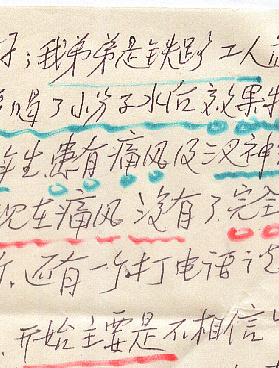 好；我弟弟是铁路工人
喝了小分子水后效果
年生患有痛风及汉神
现在痛风没有了.完全
还有一个打电话说
.开始主要是不相信